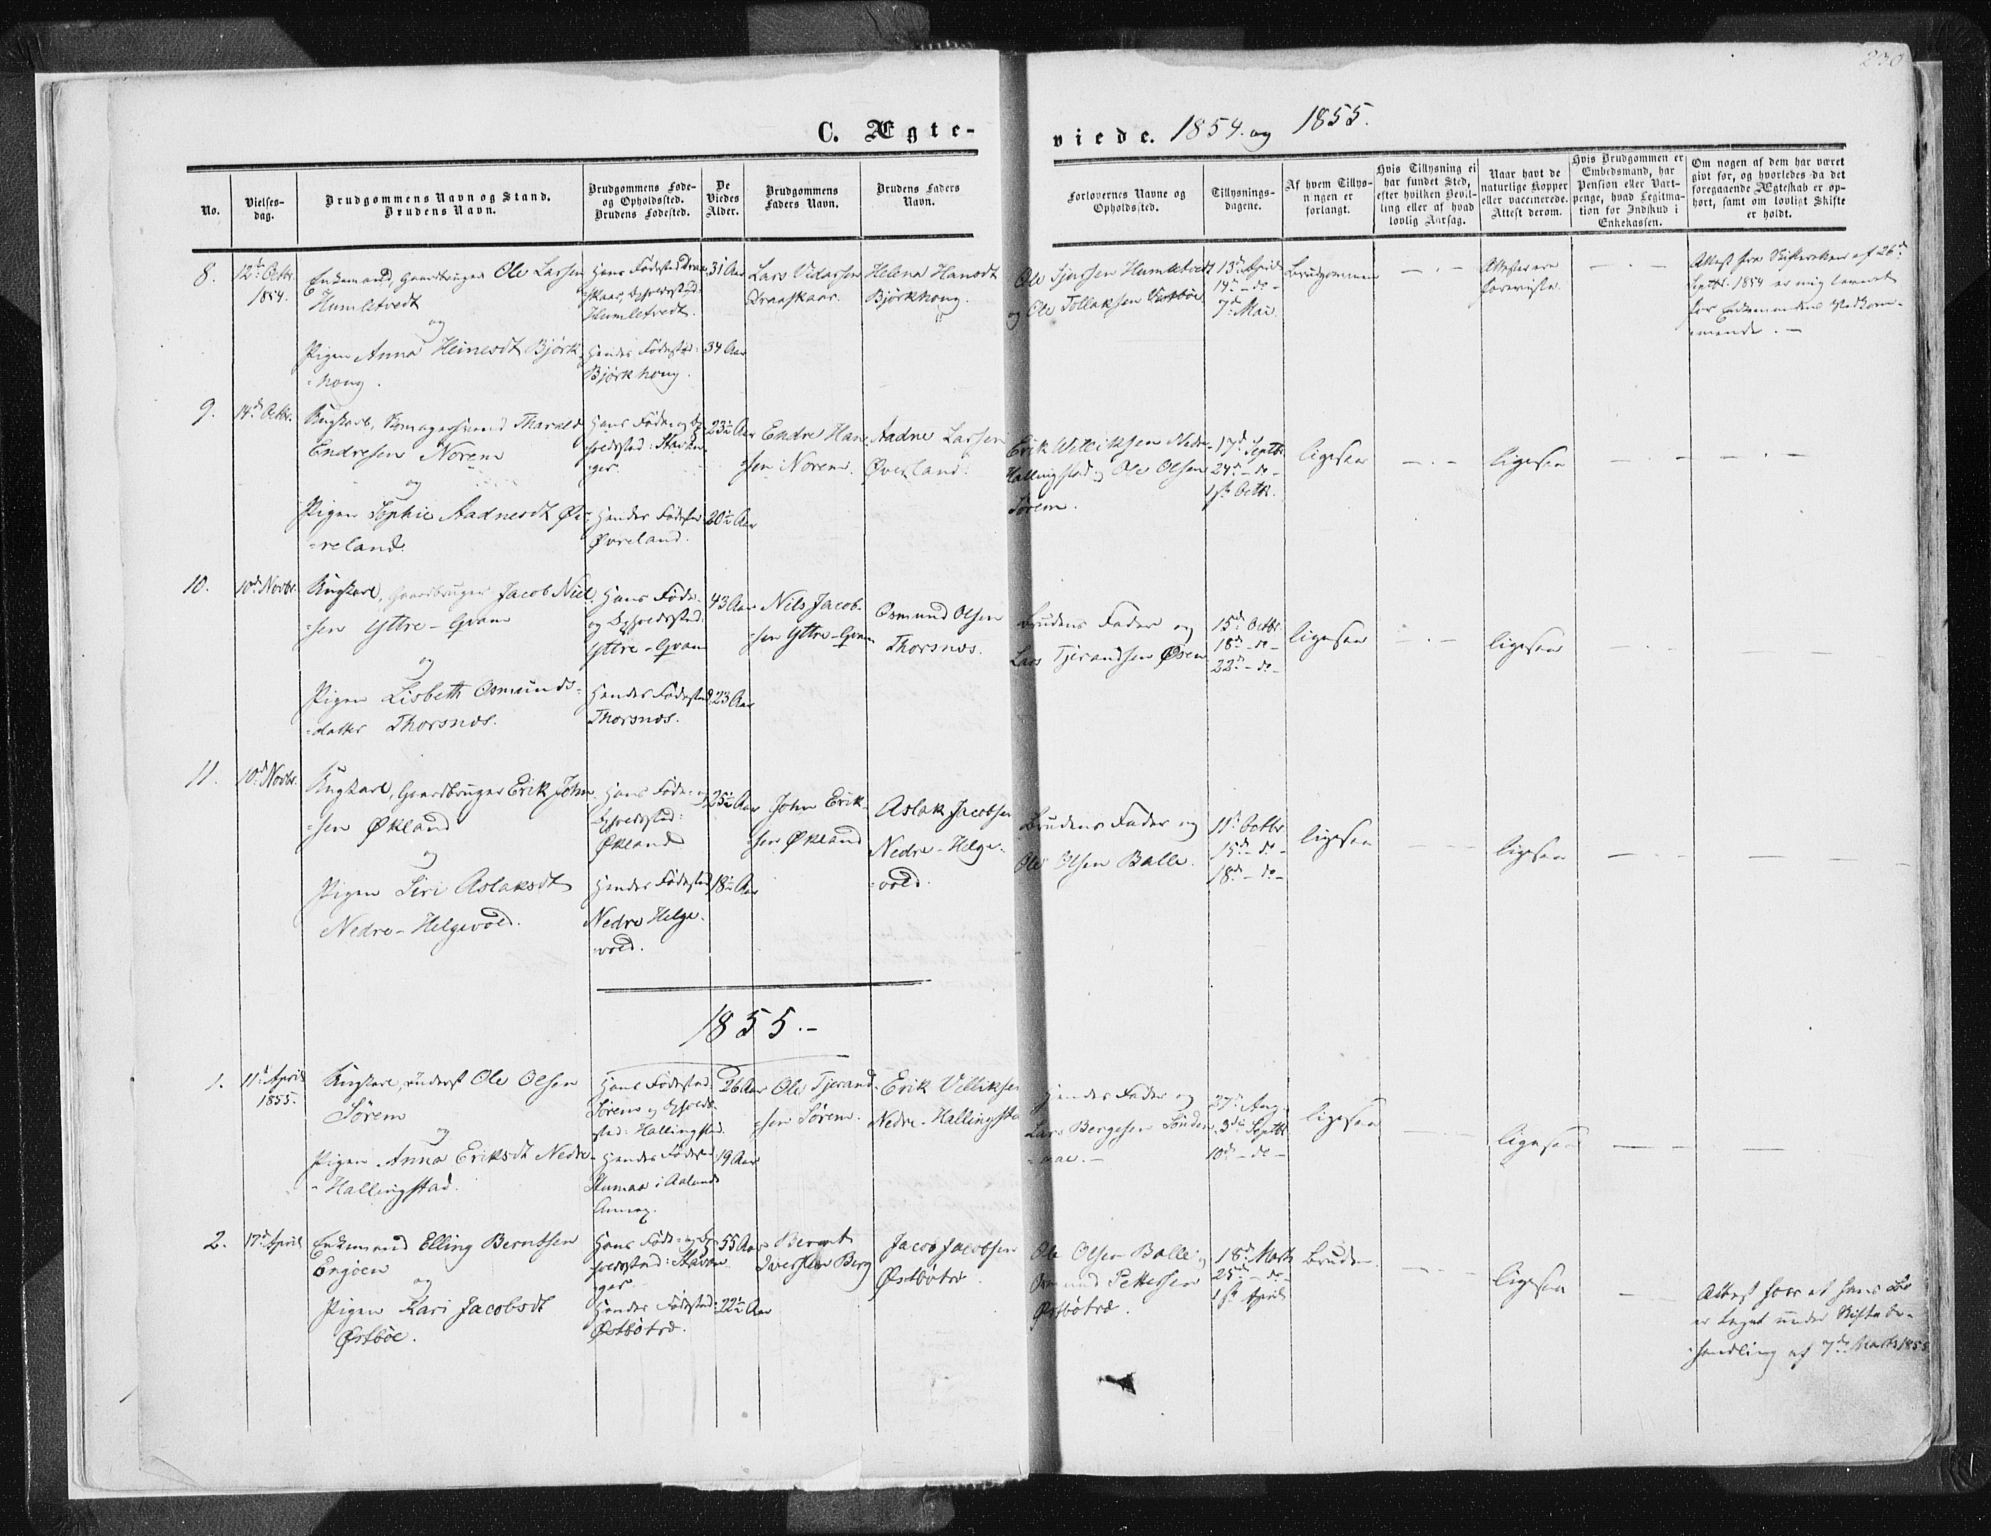 230
C. Ægte-
viede. 1854. og 1855.
No.
Vielses-
dag.
Brudgommens Navn og Stand.
Brudens Navn.
Brudgommens Føde-
og Opholdssted.
Brudens Fødested.
De
Viedes
Alder.
Brudgommens
Faders Navn.
Brudens Faders
Navn.
Forlovernes Navne og
Opholdssted.
Tillysnings-
dagene.
Af hvem Tillys-
ningen er
forlangt.
Hvis Tillysning ei
har fundet Sted,
efter hvilken Bevil-
ling eller af hvad
lovlig Aarsag.
Naar havt de
naturlige Kopper
eller vaccinerede.
Attest derom.
Hvis Brudgommen er
Embedsmand, har
Pension eller Vart-
penge, hvad Legitima-
tion for Indskud i
Enkekassen.
Om nogen af dem har været
gift før, og hvorledes da det
foregaaende Ægteskab er op-
hørt, samt om lovligt Skifte
er holdt.
8.
12te Octbr.
1854.
Enkemand, Gaardbruger Ole Larsen
Humletvedt
og
Pigen Anna Heinesdt Bjørk-
houg.
Hans Fødested Draa-
skaar, Opholdssted:
Humletvedt.
Hendes Fødested:
Bjørkhoug.
31 Aar
34 Aar
Lars Vidarsen
Draaskaar.
Helena Hansdt
Bjørkhoug.
Ole Humletvedt
og Ole Tollaksen
13de April
14de - do -
7de Mai.
Brudgommen
- . -
Attester ere
foreviste.
- . -
Attest fra Skifteretten af 26de
Septbr. 1854 er mig leveret
for Enkemandens Vedkom-
mende. -
9.
14de Octbr.
Ungkarl, Tharald
Endresen Norem
og
Pigen Sophie Aadnesdt Øv-
reland.
Hans Føde- og Op-
holdssted: Stavan-
ger.
Hendes Fødested:
Øvreland.
23½ Aar
20½ Aar
Endre Han-
sen Norem.
Aadne Larsen
Øvreland.
Erik Williksen Nedre-
Hallingstad og Ole Olsen
Sørem.
17de Septbr.
24de - do -
1ste Octbr.
ligesaa
- . -
ligesaa
- . -
- . -
10.
10de Novbr.
Ungkarl, Gaardbruger Jacob Niel-
sen Yttre-Qvam
og
Pigen Lisbeth Osmunds-
datter Thorsnæs.
Hans Føde-
og Opholdssted:
Yttre-Qvam
Hendes Fødested
Thorsnæs.
43 Aar
23 Aar
Nils Jacob-
sen Yttre-Qvam
Osmund Olsen
Thorsnæs.
Brudens Fader og
Lars Tjerandsen Øsem
15de Octbr.
18de - do -
22de - do -
ligesaa
- . -
ligesaa
- . -
11.
10de Novbr.
Ungkarl, Gaardbruger Erik John-
sen Økland
og
Pigen Siri Aslaksdt
Nedre-Helgevold.
Hans Føde- og
Opholdssted:
Økland
Hendes Fødested
Nedre Helge-
vold.
25½ Aar
18½ Aar
John Erik-
sen Økland
Aslak Jacobsen
Nedre-Helge-
vold.
Brudens Fader og
Ole Olsen Balle.
11te Octbr.
15de - do -
18de - do -
ligesaa
ligesaa
- . -
1855.-
1.
11te April
1855.
Ungkarl, Ole Olsen
Sørem
og
Pigen Anna Eriksdt Nedre-
Hallingstad.
Hans Fødested
Sørem og Opholds-
sted: Hallingstad.
Hendes Føde-
26 Aar
19 Aar
Ole Tjerand-
sen Sørem.
Erik Villiksen
Nedre-Hallingstad
Hendes Fader og
Lars Bergesen
27de Aug.
3de Septbr
10de - do -
ligesaa
ligesaa
2.
17de April
Enkemand Elling Berntsen
Engøen
og
Pigen Kari Jacobsdt
Østbøe.
Hans Føde- og Op-
holdssted: Stavan-
ger
Hendes Fødested:
Østbøtræ.
55 Aar
22½ Aar
Bernt
Iversen Berg
Jacob Jacobsen
Østbøtræ.
Ole Olsen Balle og
Osmund Pettersen
Østbøtræ.
18de Marts
25de - do -
1ste April
Bruden
ligesaa
Attest for at hans Bo
er taget under Skiftebe-
handling af 7de Marts 1855